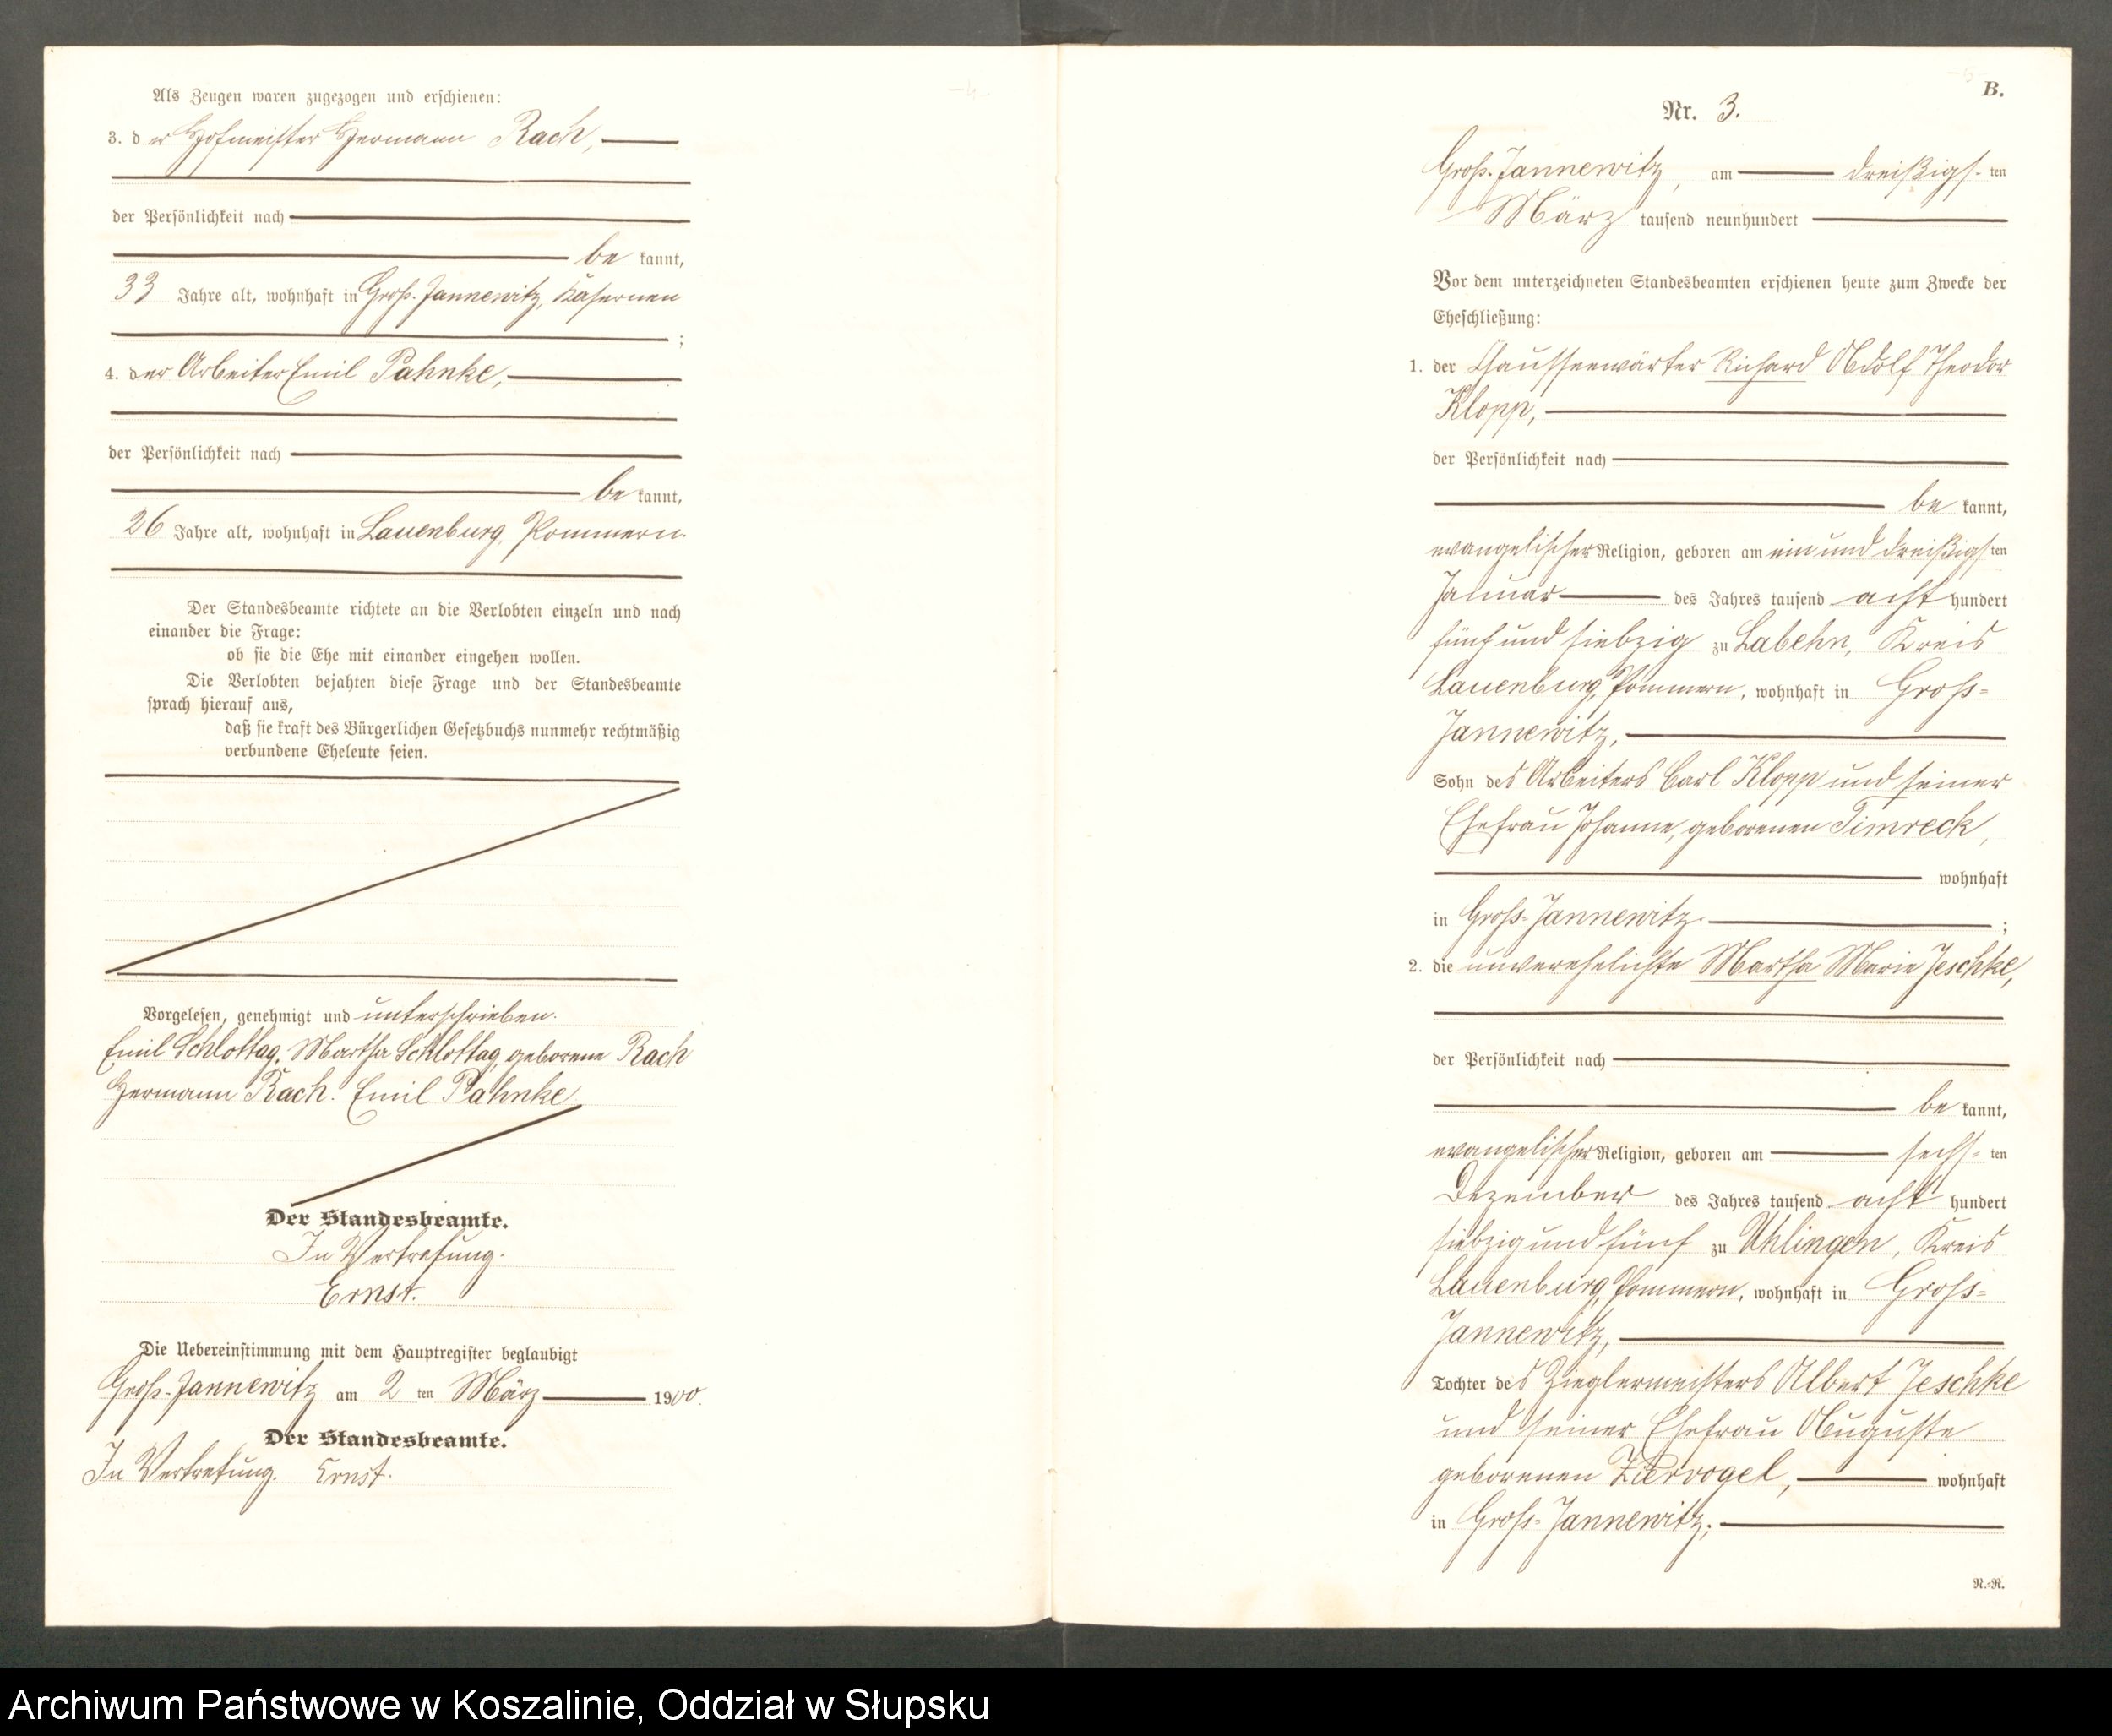 Als Zeugen waren zugezogen und erschienen:
3. der Hofmeister Hermann Rach,
der Persönlichkeit nach
be kannt,
33 Jahre alt, wohnhaft in Groß-Jannewitz, Kasernen
;
4. der Arbeiter Emil Pahnke,
der Persönlichkeit nach
be kannt,
26 Jahre alt, wohnhaft in Lauenburg, Pommern.
Der Standesbeamte richtete an die Verlobten einzeln und nach
einander die Frage:
ob sie die Ehe mit einander eingehen wollen.
Die Verlobten bejahten diese Frage und der Standesbeamte
sprach hierauf aus,
daß sie kraft des Bürgerlichen Gesetzbuchs nunmehr rechtmäßig
verbundene Eheleute seien.
Vorgelesen, genehmigt und unterschrieben.
Emil Schlottag. Martha Schlottag, geborene Rach
Hermann Rach. Emil Pahnke
Der Standesbeamte.
In Vertretung.
Ernst.
Die Uebereinstimmung mit dem Hauptregister beglaubigt
Groß-Jannewitz am 2 ten März 1900.
Der Standesbeamte.
In Vertretung. Ernst.
B.
Nr. 3.
Groß-Jannewitz, am dreißigs-ten
März tausend neunhundert
Vor dem unterzeichneten Standesbeamten erschienen heute zum Zwecke der
Eheschließung:
1. der Chausseewärter Richard Adolf Theodor
Klopp,
der Persönlichkeit nach
be kannt,
evangelischer Religion, geboren am ein und dreißigsten
Januar des Jahres tausend acht hundert
fünf und siebzig zu Labehn, Kreis
Lauenburg, Pommern, wohnhaft in Groß-
Jannewitz,
Sohn des Arbeiters Carl Klopp und seiner
Ehefrau Johanne, geborenen Timreck,
wohnhaft
in Groß-Jannewitz. ;
2. die unverehelichte Martha Marie Jeschke,
der Persönlichkeit nach
be kannt,
evangelischer Religion, geboren am sechs-ten
Dezember des Jahres tausend acht hundert
siebzig und fünf zu Uhlingen, Kreis
Lauenburg, Pommern, wohnhaft in Groß-
Jannewitz,
Tochter des Zieglermeisters Albert Jeschke
und seiner Ehefrau Auguste
geborenen Ziervogel, wohnhaft
in Groß-Jannewitz;
N.-R.
Archiwum Państwowe w Koszalinie, Oddział w Słupsku